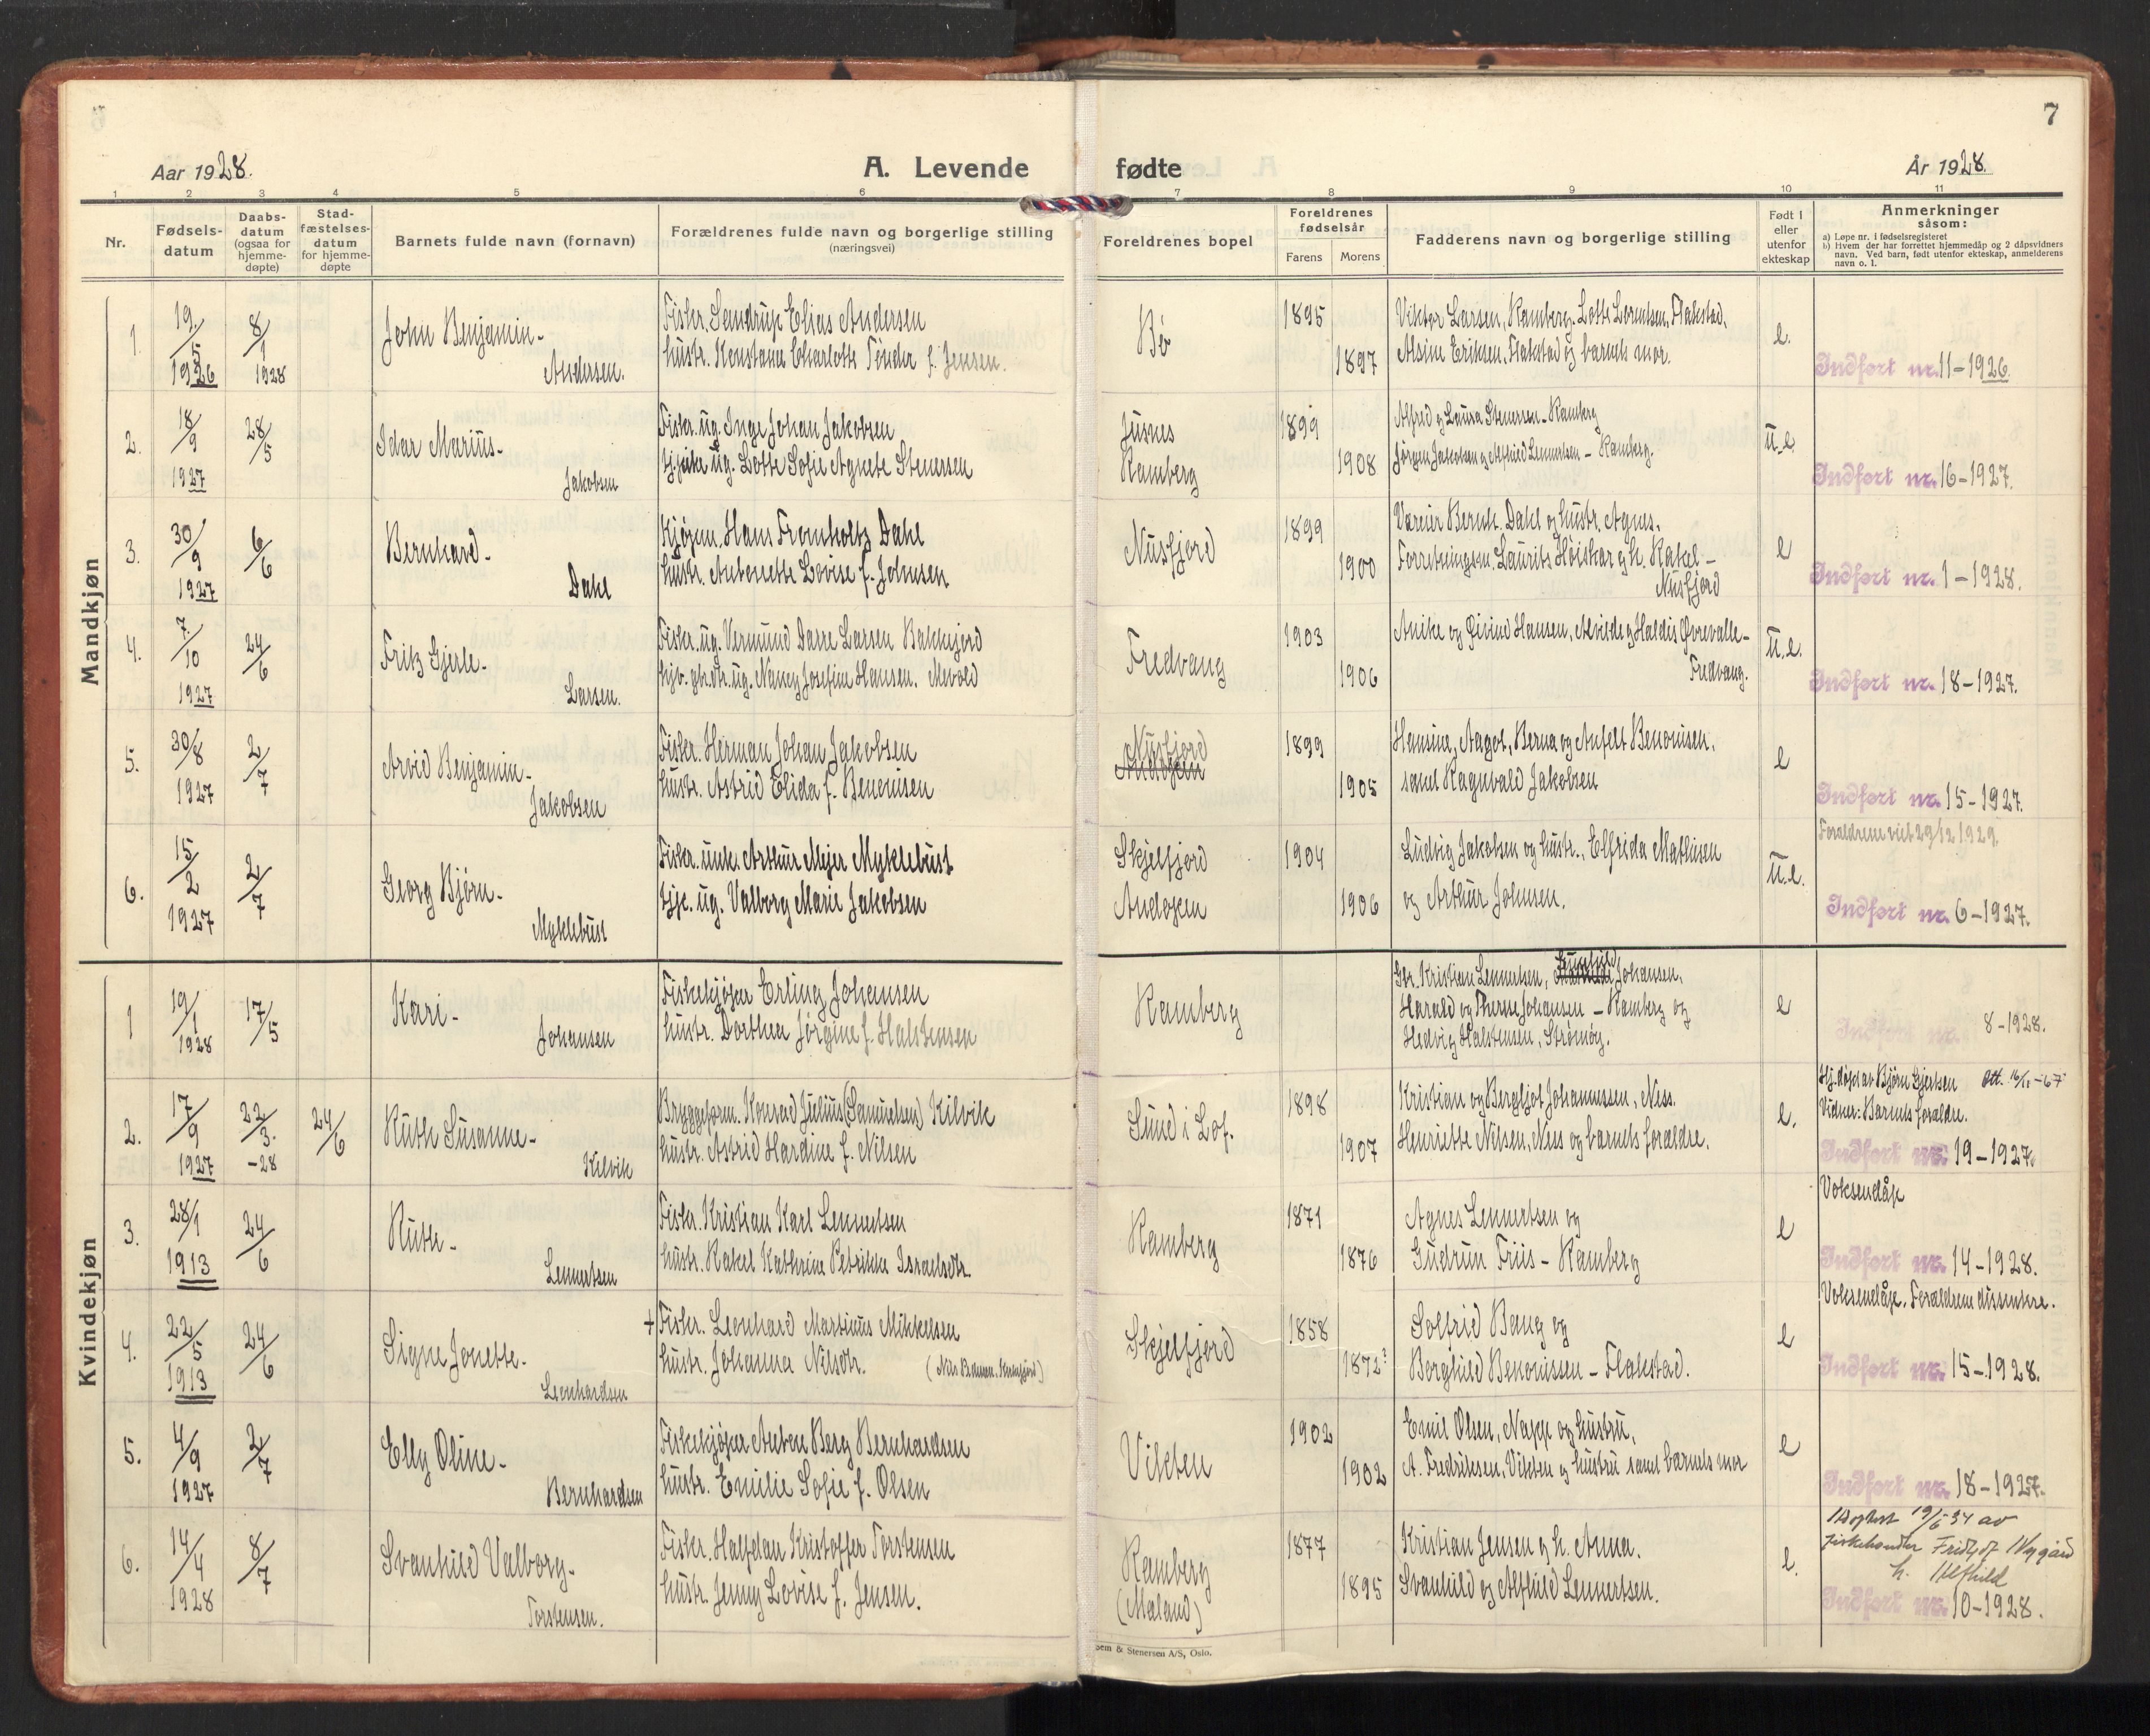 7
Aar 1928.
A. Levende
fødte
År 1928.
1 2 3 4 5 6 7 8 9 10 11
Nr.
Fødsels-
datum
Daabs-
datum
(ogsaa for
hjemme-
døpte)
Stad-
fæstelses-
datum
for hjemme-
døpte
Barnets fulde navn (fornavn)
Forældrenes fulde navn og borgerlige stilling
(næringsvei)
Foreldrenes bopel
Foreldrenes
fødselsår
Farens Morens
Fadderens navn og borgerlige stilling
Født i
eller
utenfor
ekteskap
Anmerkninger
såsom:
a) Løpe nr. i fødselsregisteret
b) Hvem der har forrettet hjemmedåp og 2 dåpsvidners
navn. Ved barn, født utenfor ekteskap, anmelderens
navn o. l.
Mandkjøn
1. 19/5 1926 8/1 1928
John Benjamin-
Andersen.
Fisker. Sendrup Elias Andersen
hustr. Konstanse Charlotte Tønder f. Jensen.
Bø
1895
1897
Viktor Larsen, Ramberg. Lotte Lorentsen, Flakstad,
Alsine Eriksen, Flakstad og barnets mor.
e.
Indført nr. 11-1926.
2. 18/9 1927 28/5
Idar Marius-
Jakobsen
Fisker. ug. Inge Johan Jakobsen
ug. Lotte Sofie Agnete Stenersen
Jusnes
Ramberg
1899
1908
Alfred og Laura Stenersen-Ramberg
Jørgen Jakobsen og Alfhild Lennertsen - Ramberg.
u.e.
Indført nr. 16-1927.
3. 30/9 1927 6/6
Bernhard-
Dahl
Kjøpm. Hans Fromholtz Dahl
hustr. Antonette Lovise f. Johnsen
Nusfjord
1899
1900
Væreier Bernh. Dahl og hustr. Agnes,
Forretningsm. Laurits Høiskar og h. Rakel-
Nusfjord
e
Indført nr. 1-1928.
4. 7./10 1927 24/6
Fritz Gjerle-
Larsen.
Fisker. ug. Vermund Dasse Larsen Bakkejord
ug. Nancy Josefine Hansen. Mevold
Fredvang
1903
1906
Anike og Øivind Hansen, Alvilde og Haldis Øvrevalle-
Fredvang.
u.e.
Indført nr. 18-1927.
5. 30/8 1927 2/7
Arvid Benjamin-
Jakobsen
Fisker. Herman Johan Jakobsen
hustr. Astrid Elida f. Benonisen
Nusfjord
1899
1905
Hansine, Aagot, Berna og Anfelt Benonisen,
samt Ragnvald Jakobsen
e
Indført nr. 15-1927.
6. 15/2 1927 2/7
Georg Bjørn-
Myklebust
Fisker. unk. Arthur Mejer Myklebust
tjp. ug. Valborg Marie Jakobsen
Skjelfjord
Andopen
1904
1906
Ludvig Jakobsen og hustr., Elfrida Mathisen
og Arthur Johnsen.
u.e.
Foreldrene viet 29/12 1929.
Indført nr. 6-1927.
Kvindekjøn
1 19/1 1928 17/5
Kari-
Johansen
Fiskekjøper Erling Johansen
hustr. Dorthea Jørgine f. Halstensen
Ramberg
Kristian Lennertsen, Gunhild Johansen,
Harald og Therese Johansen - Ramberg og
Hedvig Halstensen, Strømøy.
e
Indført nr. 8-1928.
2. 17/9 1927 22/3. -28 24/6
Ruth Susanne-
Kilvik
Bryggeform. Konrad Julius (Samuelsen) Kilvik
hustr. Astrid Hardine f. Nilsen
Sund i Lof.
1898
1907
Kristian og Bergljot Johannessen, Ness.
Henriette Nilsen, Ness og barnets forældre.
e.
Hj. døpt av Bjørn Gjertsen Att. 16/11-67
Vidner: Barnets forældre.
Indført nr. 19-1927.
3. 28/1 1913 24/6
Ruth-
Lennertsen
Fisker. Kristian Karl Lennertsen
hustr. Rakel Kathrine Petrikke Israelsdtr.
Ramberg
1871
1876
Agnes Lennertsen og
Gudrun Friis - Ramberg
e
Voksendåp
Indført nr. 14-1928.
4. 22/5 1913 24/6
Signe Jonette-
Leonhardsen
+ Fisker. Leonhard Martinus Mikkelsen
hustr. Johanna Nilsdtr.
Skjelfjord
1858
1872?
Solfrid Bang og
Borghild Benonissen - Flakstad.
e
Voksendåp. Forældrene dissentere.
Indført nr. 15-1928.
5. 4/9 1927 2/7
Elly Oline-
Bernhardsen
Fiskekjøper Anton Berg Bernhardsen
hustr. Emilie Sofie f. Olsen
Vikten
1902
1902
Emil Olsen, Napp og hustru,
A. Fredriksen, Vikten og hustru samt barnets mor
e
Indført nr. 18-1927.
6. 14/4 1928 8/7
Svanhild Valborg-
Torstensen.
Fisker. Halfdan Kristoffer Torstensen
hustr. Jenny Lovise f. Jensen.
Ramberg
(Mæland)
1877
1895
Kristian Jensen og h. Anna.
Svanhild og Alfhild Lennertsen.
e.
Adoptert 19/6 34 av
fiskehandler Fridtjof Nygård
h. Alfhild
Indført nr. 10-1928.
Sem & Stenersen A/S, Oslo.